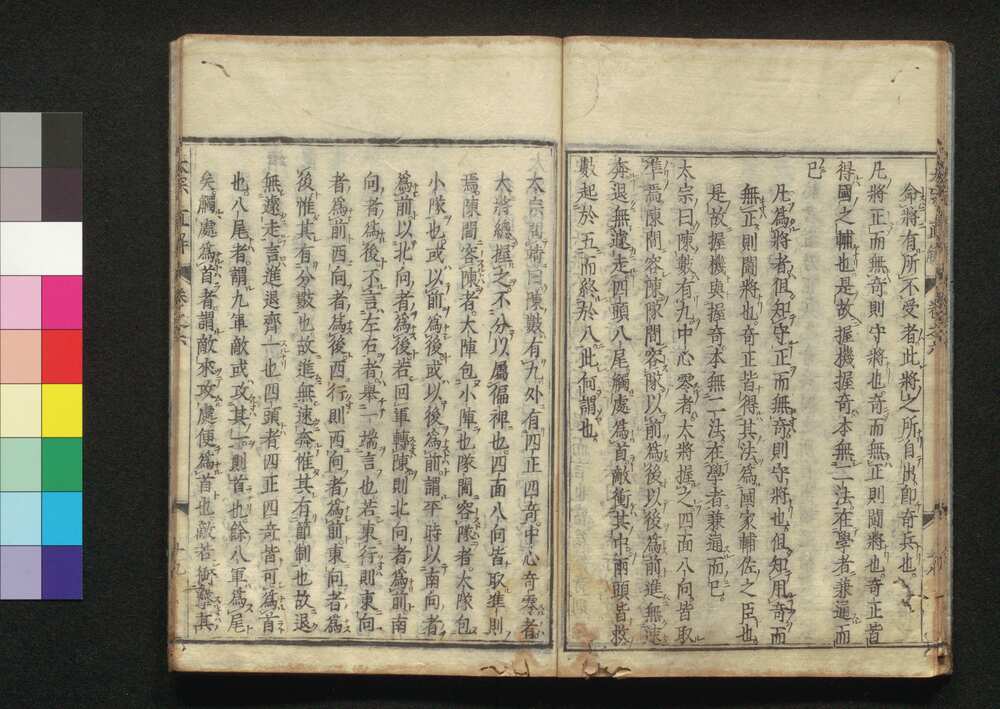 命將有所不受者此將之所自出即奇兵也
凡將正而無奇則守將也奇而無正則鬪將也奇正皆
得國之輔也是故握機握奇本無二法在學者兼通而
已
凡為將者但知守正而無奇則守將也但知用奇而
無正則鬪將也奇正皆得其法為國家輔佐之臣也
是故握機與握奇本無二法在學者兼通而已
太宗曰陳數有九中心零者大將握之四面八向皆取
準焉陳間容陳隊間容隊以前為後以後為前進無速
奔退無遽走四頭八尾觸處為首敵衝其中兩頭皆救
數起於五而終於八此何謂也
太宗問靖曰陳數有九外有四正四奇中心奇零者
大將總握之不分以屬褊裨也四面八向皆取準則
焉陳間容陳者大陣包小陣也隊間容隊者大隊包
小隊也或以前為後或以後為前謂平時以南向者
為前以北向者為後若回軍轉陳則北向者為前南
向者為後不言左右者舉一端言也若東行則東向
者為前西向者為後西行則西向者為前東向者為
後惟其有分數也故進無速奔惟其有節制也故退
無遽走言進退齊一也四頭者四正四奇皆可為首
也八尾者謂九軍敵或攻其一則首也餘八軍為尾
矣觸處為首者謂敵來攻處便為首也敵若衝擊其